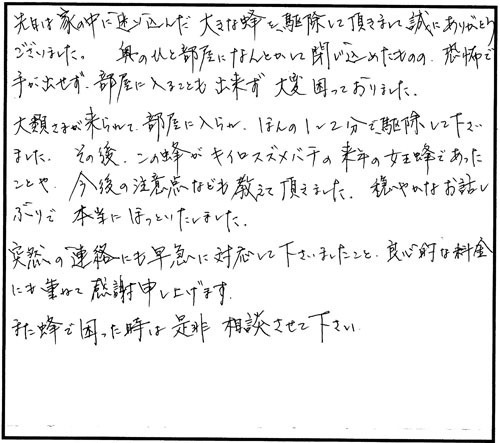 先日は家の中に迷い込んだ大きな蜂を駆除して頂きまして誠にありがとう
ございました。 奥のひと部屋になんとかして閉じ込めたものの、恐怖で
手が出せず、部屋に入ることも出来ず 大変困っておりました。
大類さまが来られて、部屋に入られ、ほんの1~2分で駆除して下さい
ました。 その後、この蜂がキイロスズメバチの来年の女王蜂であった
ことや、今後の注意点なども教えて頂きました。 穏やかなお話し
ぶりで 本当にほっといたしました。
突然の連絡にも早急に対応して下さいましたこと、良心的な料金
にも重ねて感謝申し上げます。
また蜂で困った時は是非 相談させて下さい